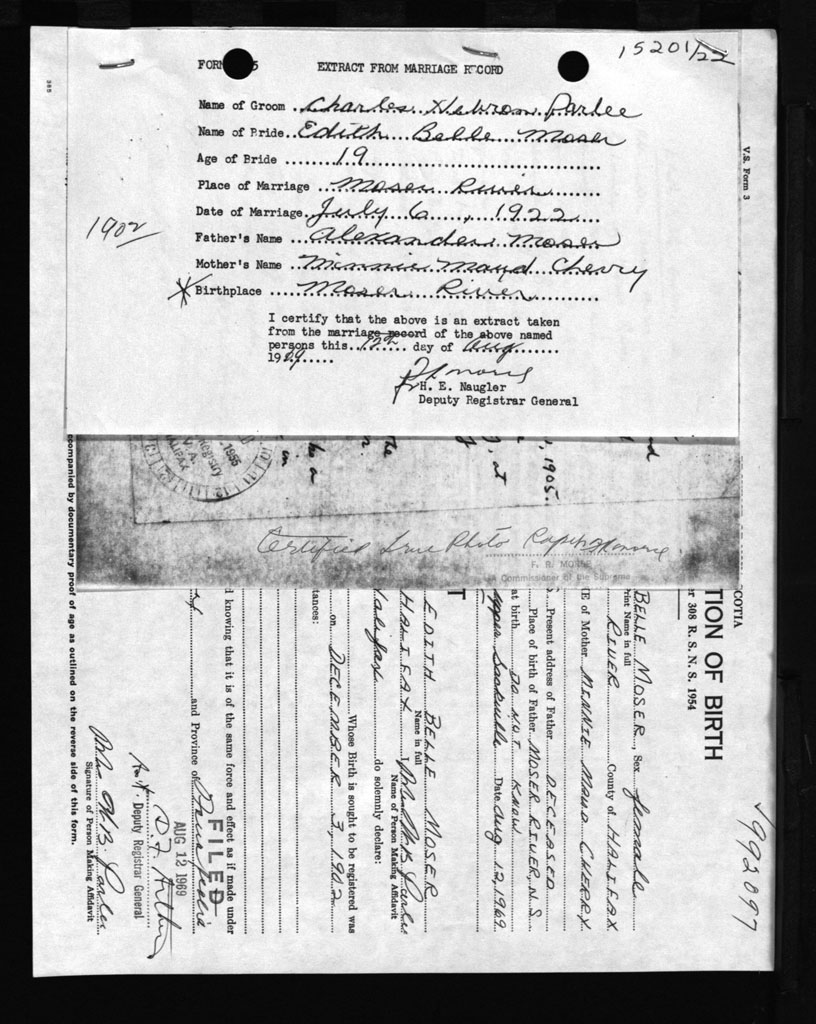 15201/22
FORM 5 EXTRACT FROM MARRIAGE RECORD
Name of Groom . Charles Hebron Parlee
Name of Bride. Edith Belle Moser
Age of Bride ....... 19
Place of Marriage ... Moser River
Date of Marriage. July 6, 1922
1902
Father's Name ... Alexander Moser
Mother's Name ... Minnie Maud Cherry
Birthplace .... Moser River
I certify that the above is an extract taken
from the marriage record of the above named
persons this 12 day of Aug
1969
H. E. Naugler
Deputy Registrar General
385
V.S. Form 3
1955
HALIFAX
, 1905.
at
the
in
Certified True Photo
F. R.
A Commissioner of the Supreme
COTIA
TION OF BIRTH
er 308 R. S. N. S. 1954
992097
BELLE MOSER, Sex female
rint Name in full
RIVER County of HALIFAX
E of Mother MINNIE MAUD CHERRY
Present address of Father DECEASED
Place of birth of Father MOSER RIVER, N. S.
at birth DO NOT KNOW
Upper Sackville Date Aug 12, 1969
T
EDITH BELLE MOSER
Name in full
HALIFAX I
Name of Person Making Affidavit
Halifax do solemnly declare:
Whose Birth is sought to be registered was
on DECEMBER 3, 1902
tances:
d knowing that it is of the same force and effect as if made under
and Province of
FILED
AUG 12 1969
Deputy Registrar General
Signature of Person Making Affidavit
ccompanied by documentary proof of age as outlined on the reverse side of this form.